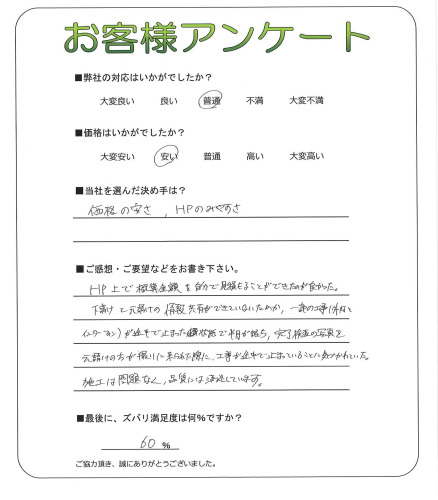 お客様アンケート
■弊社の対応はいかがでしたか?
大変良い 良い 普通 不満 大変不満
■価格はいかがでしたか?
大変安い 安い 普通 高い 大変高い
■当社を選んだ決め手は?
価格の安さ、HPのみやすさ
■ご感想・ご要望などをお書き下さい。
HP上で概算金額を自分で見積もることができたのが良かった。
下請けと元請けの情報共有ができていないためか、一部の工事(外柱と
インターフォン)が途中で止まった状態で半月が経ち、完了検査の写真を
元請けの方が撮りに来られた際に、工事が途中で止まっていることに気づかれていた。
施工は問題なく、品質には満足しています。
■最後に、ズバリ満足度は何%ですか?
60 %
ご協力頂き、誠にありがとうございました。